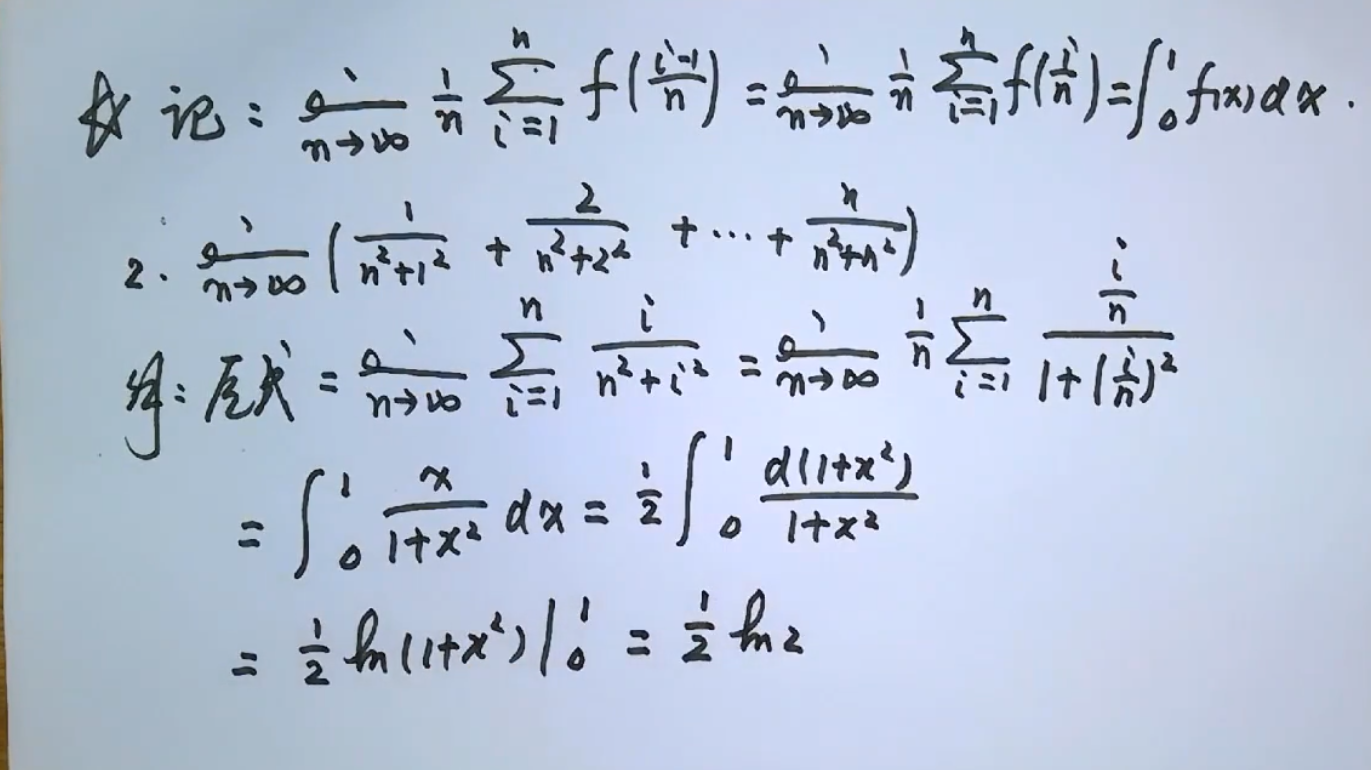 ☆ 记: lim n→∞ 1/n ∑_{i=1}^{n} f((i-1)/n) = lim n→∞ 1/n ∑_{i=1}^{n} f(i/n) = ∫₀¹ f(x)dx.
2. lim n→∞ (1/(n²+1²) + 2/(n²+2²) + ⋯ + n/(n²+n²))
解: 原式 = lim n→∞ ∑_{i=1}^{n} i/(n²+i²) = lim n→∞ 1/n ∑_{i=1}^{n} (i/n)/(1+(i/n)²)
= ∫₀¹ x/(1+x²) dx = 1/2 ∫₀¹ d(1+x²)/(1+x²)
= 1/2 ln(1+x²)|₀¹ = 1/2 ln2